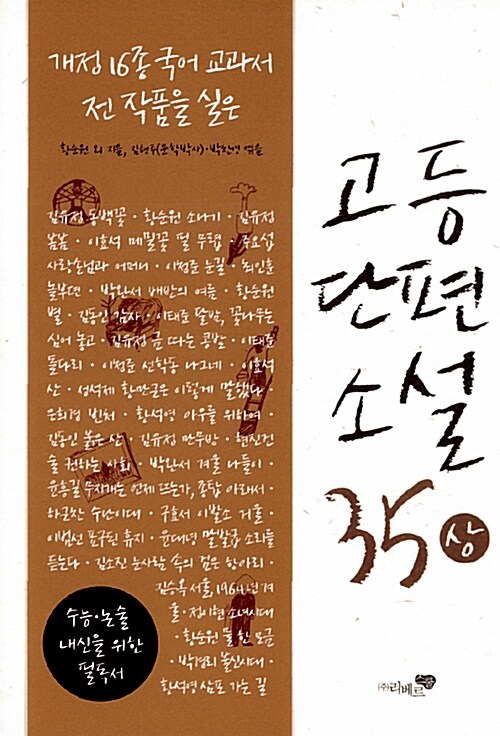 개정 16종 국어 교과서
전 작품을 실은
황순원 외 지음, 김형주(문학박사)·박찬영 엮음
김유정 동백꽃 · 황순원 소나기 · 김유정
봄봄 · 이효석 메밀꽃 필 무렵 · 주요섭
사랑손님과 어머니 · 이청준 눈길 · 최인훈
놀부뎐 · 박완서 배반의 여름 · 황순원
별 · 김동인 감자 · 이태준 달밤, 꽃나무는
심어 놓고 · 김유정 금 따는 콩밭 · 이태준
돌다리 · 이청준 선학동 나그네 · 이효석
산 · 성석제 황만근은 이렇게 말했다 ·
은희경 빈처 · 황석영 아우를 위하여 ·
김동인 붉은 산 · 김유정 만무방 · 현진건
술 권하는 사회 · 박완서 겨울 나들이 ·
윤흥길 무지개는 언제 뜨는가, 종탑 아래서 ·
하근찬 수난이대 · 구효서 이발소 거울 ·
이범선 표구된 휴지 · 윤대녕 말발굽 소리를
듣는다 · 김소진 눈사람 속의 검은 항아리 ·
김승옥 서울, 1964년 겨
울 · 정이현 소녀시대
· 황순원 물 한 모금
· 박경리 불신시대 ·
황석영 삼포 가는 길
수능·논술
내신을 위한
필독서
고등
단편
소설
35 상
(주)리베르
스쿨